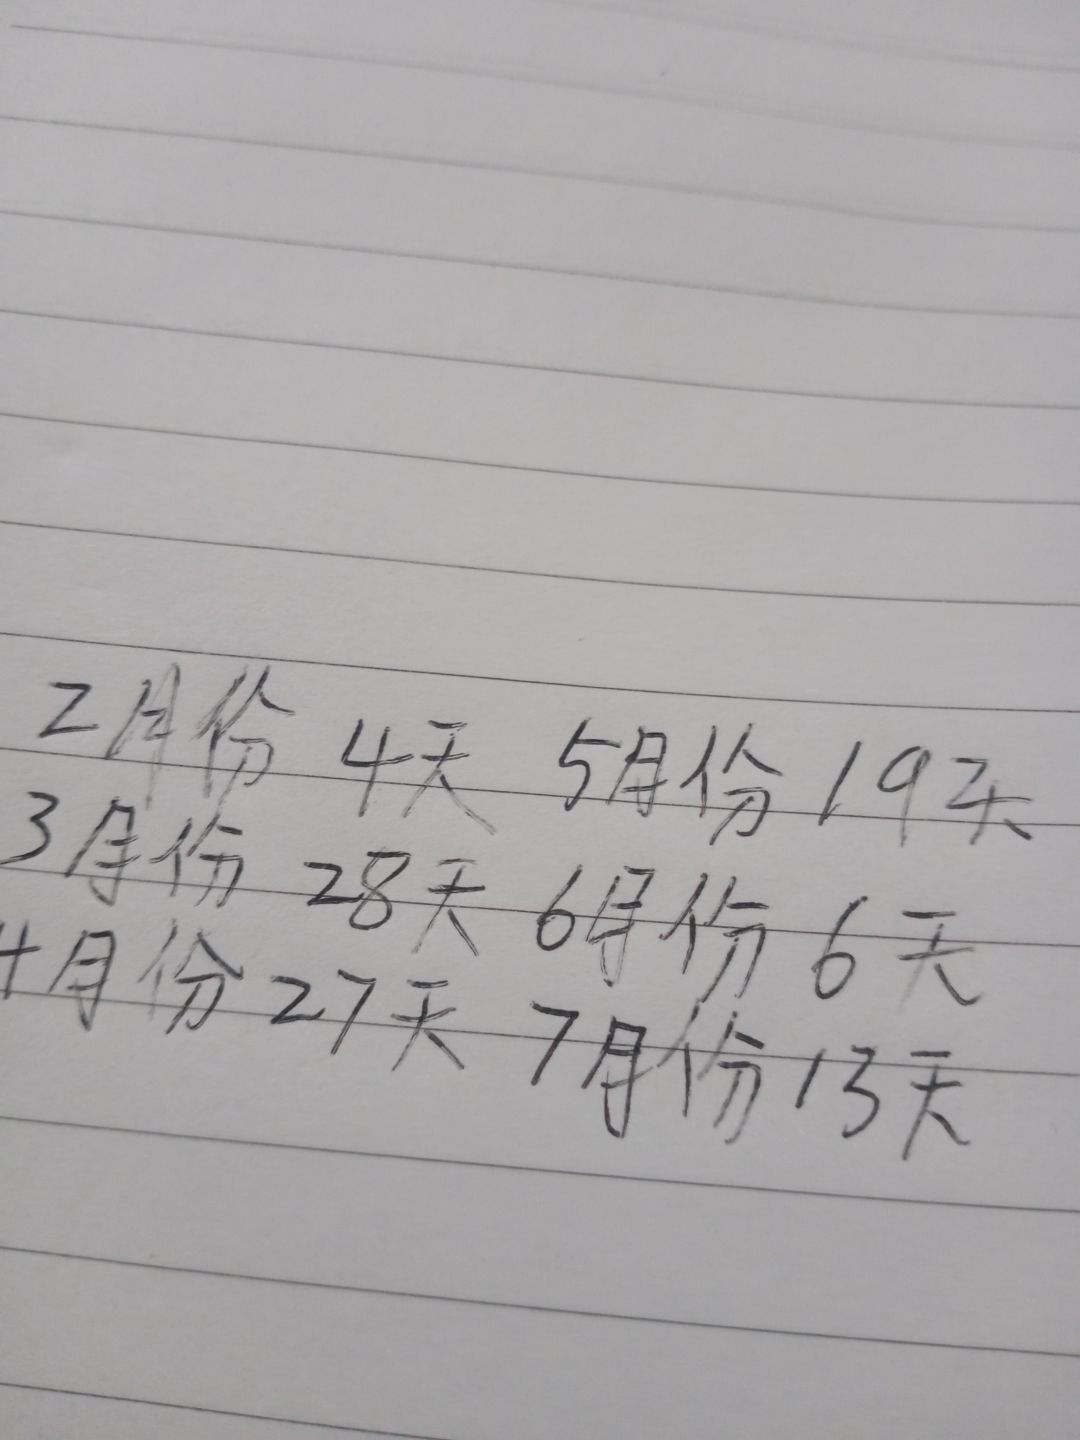 2月份 4天 5月份 19天
3月份 28天 6月份 6天
4月份 27天 7月份 13天